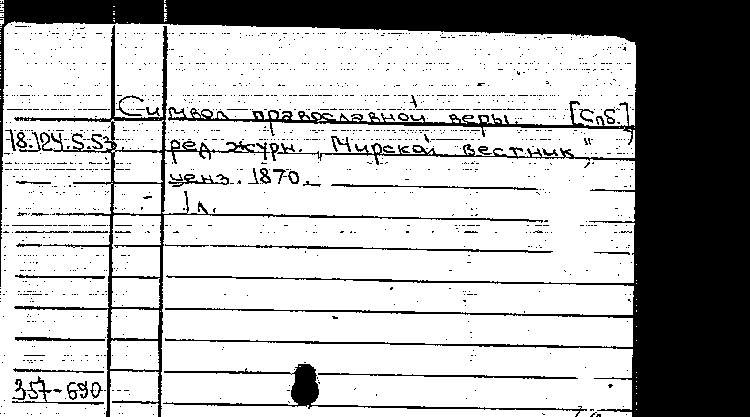 Символ православной веры. [Спб.],
18.124.5.53 ред. журн. „Мирской вестник",
ценз. 1870.
1 л.
357-690